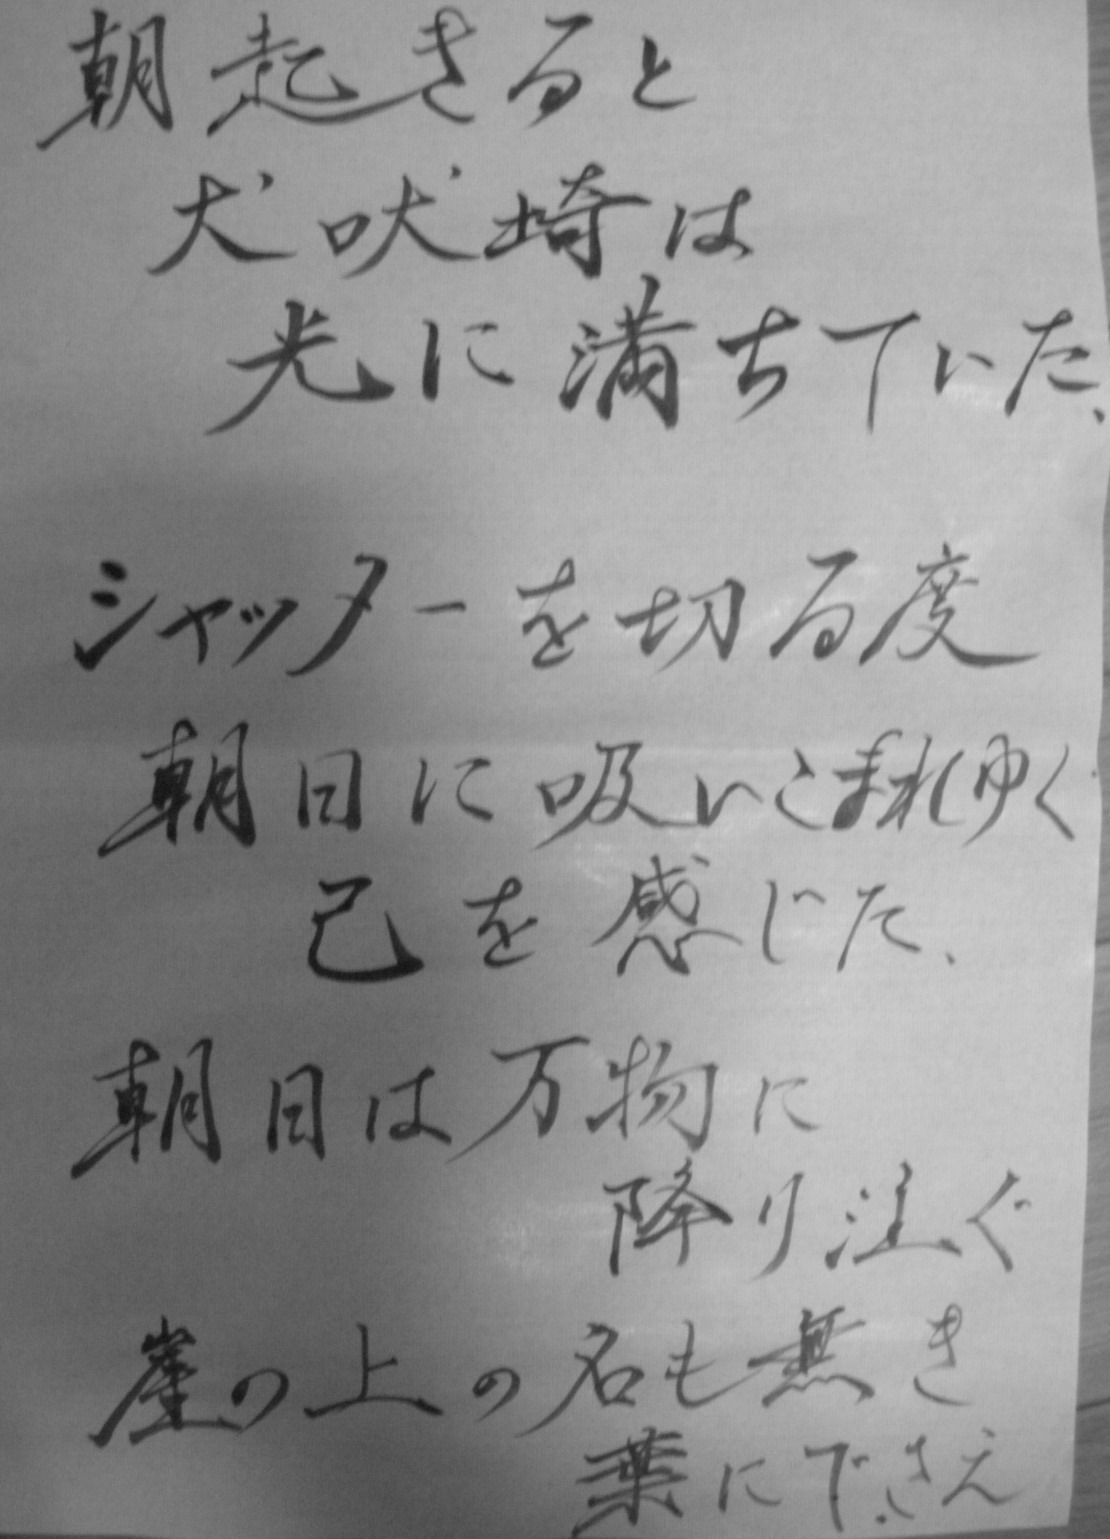 朝起きると
犬吠埼は
光に満ちていた、
シャッターを切る度
朝日に吸いこまれゆく
己を感じた、
朝日は万物に
降り注ぐ
崖の上の名も無き
葉にでさえ